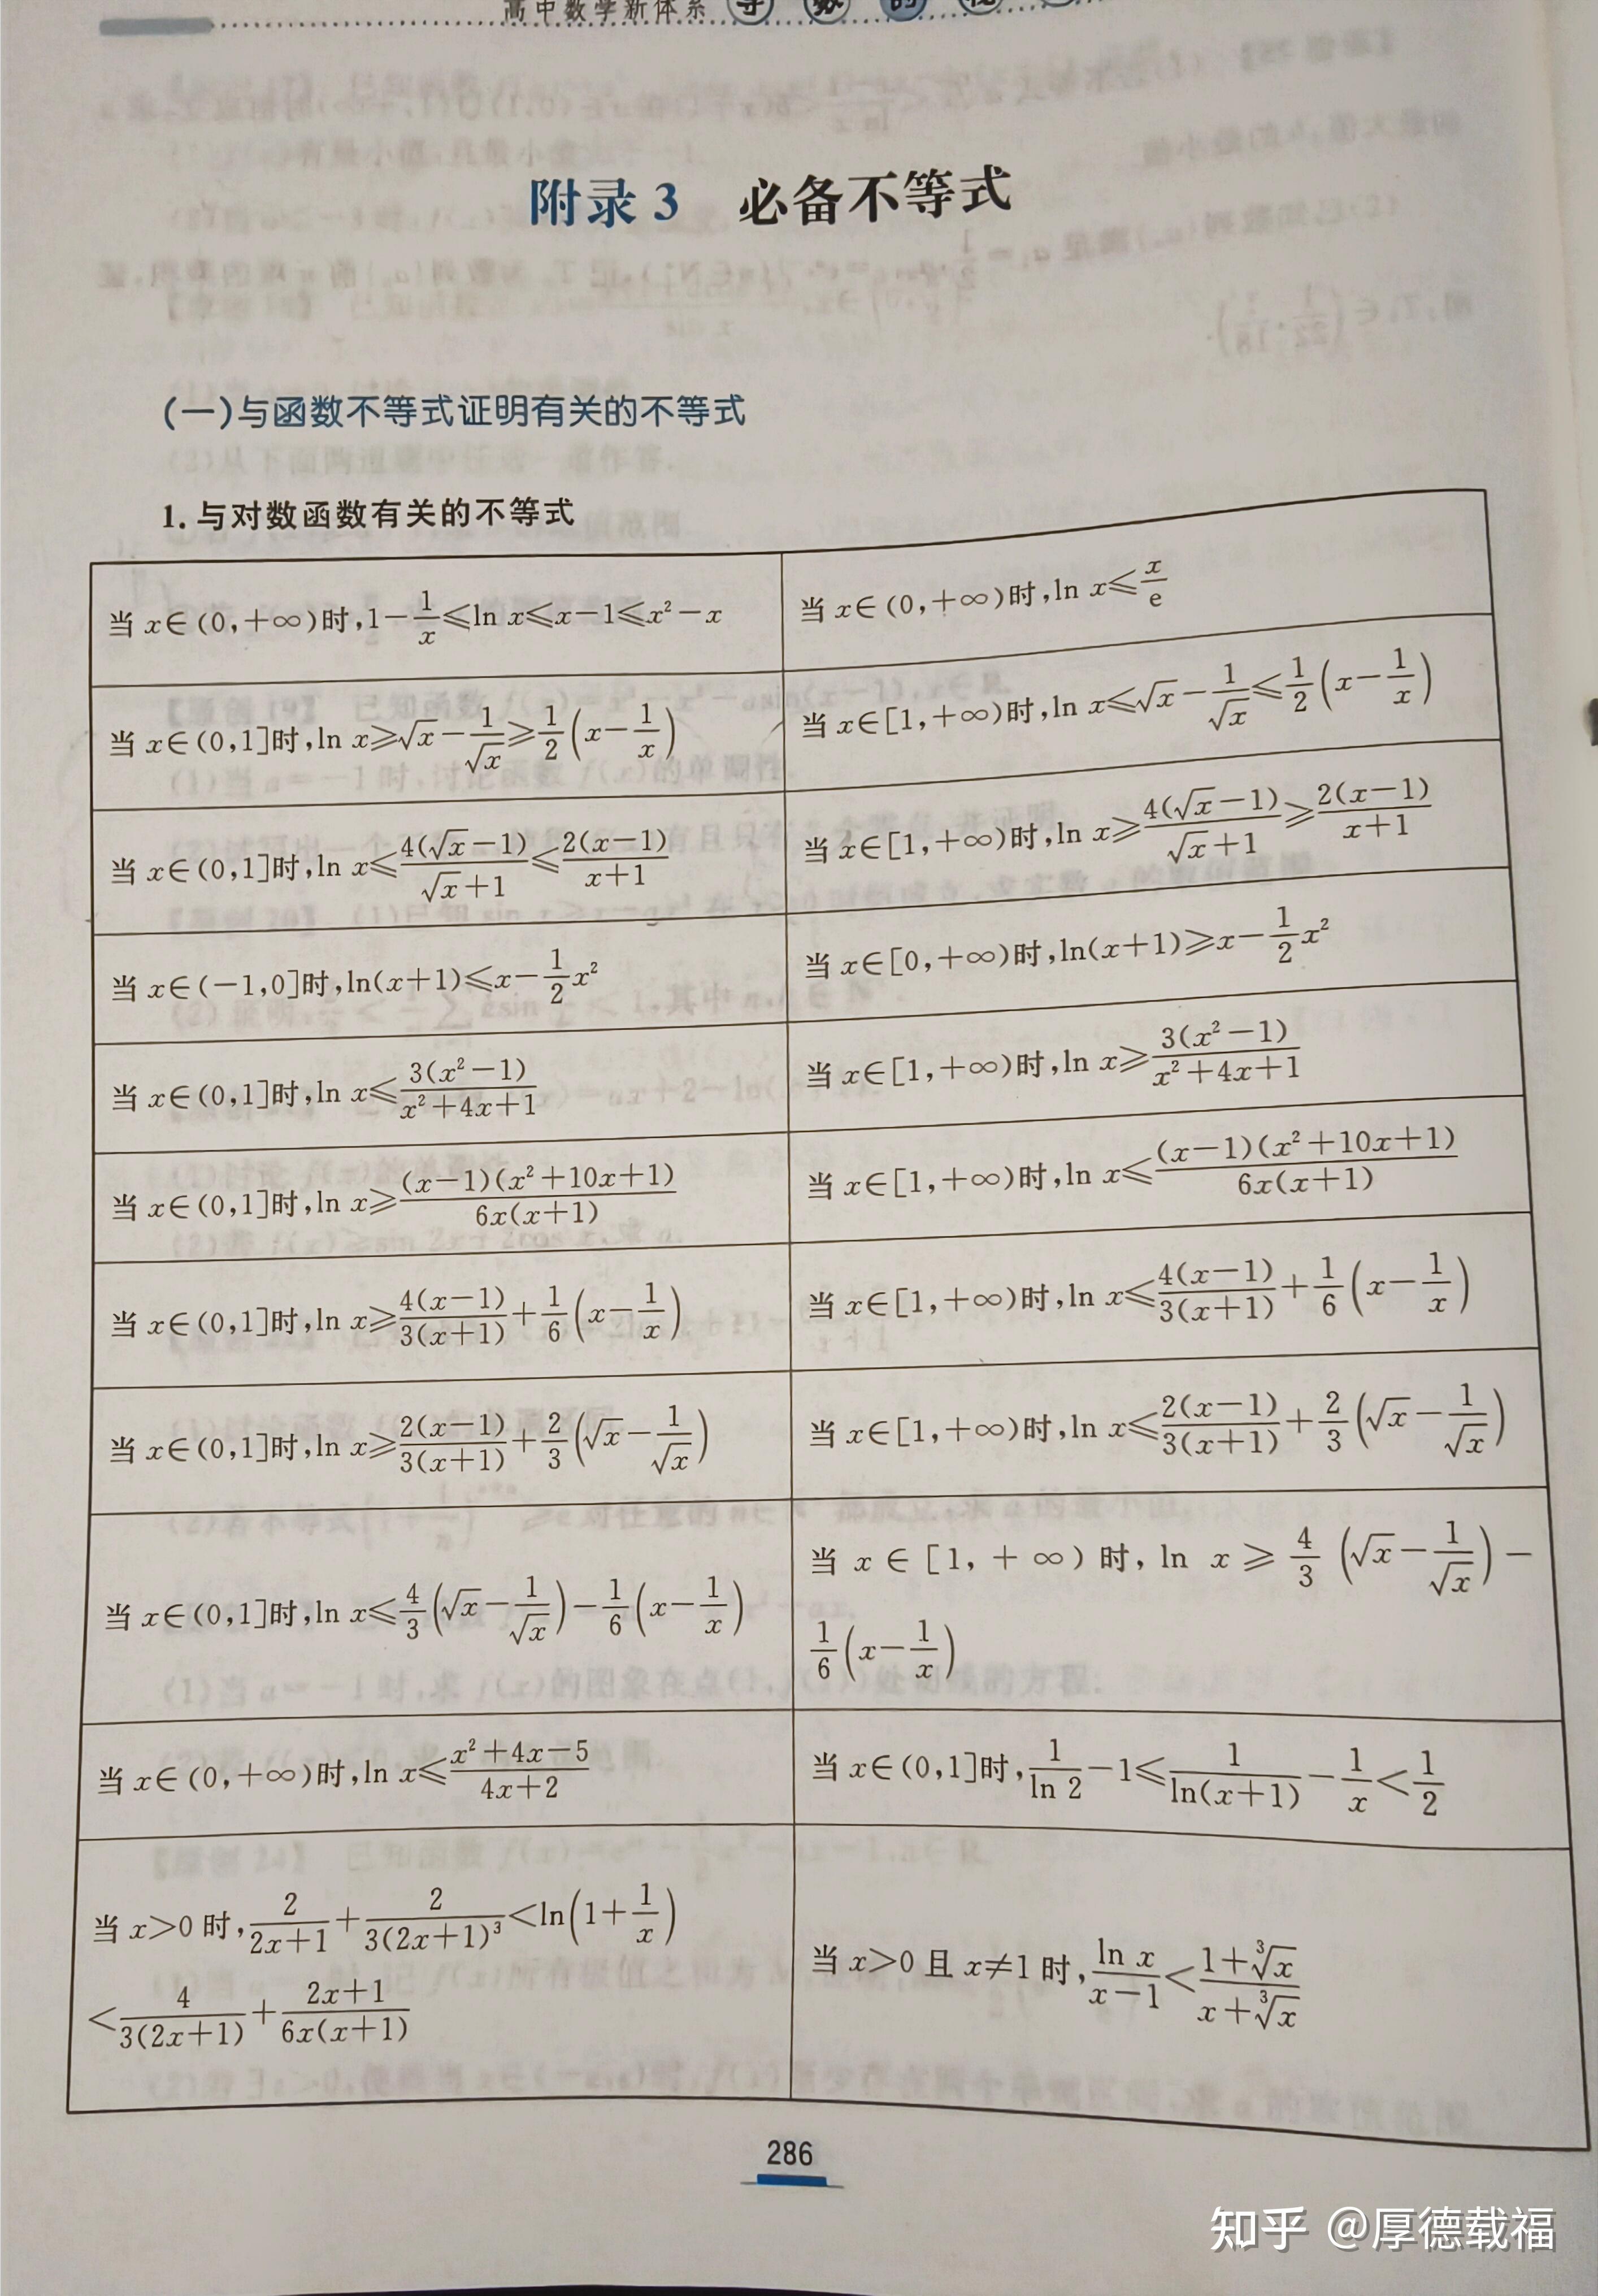 高中数学新体系 导 数 的
附录 3 必备不等式
(一)与函数不等式证明有关的不等式
1. 与对数函数有关的不等式
当 x∈(0,+∞)时,1−1/x≤ln x≤x−1≤x²−x
当 x∈(0,+∞)时,ln x≤x/e
当 x∈(0,1]时,ln x≥√x−1/√x≥1/2(x−1/x)
当 x∈[1,+∞)时,ln x≤√x−1/√x≤1/2(x−1/x)
当 x∈(0,1]时,ln x≤4(√x−1)/(√x+1)≤2(x−1)/(x+1)
当 x∈[1,+∞)时,ln x≥4(√x−1)/(√x+1)≥2(x−1)/(x+1)
当 x∈(−1,0]时,ln(x+1)≤x−1/2x²
当 x∈[0,+∞)时,ln(x+1)≥x−1/2x²
当 x∈(0,1]时,ln x≤3(x²−1)/(x²+4x+1)
当 x∈[1,+∞)时,ln x≥3(x²−1)/(x²+4x+1)
当 x∈(0,1]时,ln x≥(x−1)(x²+10x+1)/6x(x+1)
当 x∈[1,+∞)时,ln x≤(x−1)(x²+10x+1)/6x(x+1)
当 x∈(0,1]时,ln x≥4(x−1)/3(x+1)+1/6(x−1/x)
当 x∈[1,+∞)时,ln x≤4(x−1)/3(x+1)+1/6(x−1/x)
当 x∈(0,1]时,ln x≥2(x−1)/3(x+1)+2/3(√x−1/√x)
当 x∈[1,+∞)时,ln x≤2(x−1)/3(x+1)+2/3(√x−1/√x)
当 x∈(0,1]时,ln x≤4/3(√x−1/√x)−1/6(x−1/x)
当 x∈[1,+∞)时,ln x≥4/3(√x−1/√x)−
1/6(x−1/x)
当 x∈(0,+∞)时,ln x≤(x²+4x−5)/(4x+2)
当 x∈(0,1]时,1/ln 2−1≤1/ln(x+1)−1/x<1/2
当 x>0 时,2/(2x+1)+2/3(2x+1)³<ln(1+1/x)
<4/3(2x+1)+(2x+1)/6x(x+1)
当 x>0 且 x≠1 时,ln x/(x−1)<(1+∛x)/(x+∛x)
286
知乎 @厚德载福